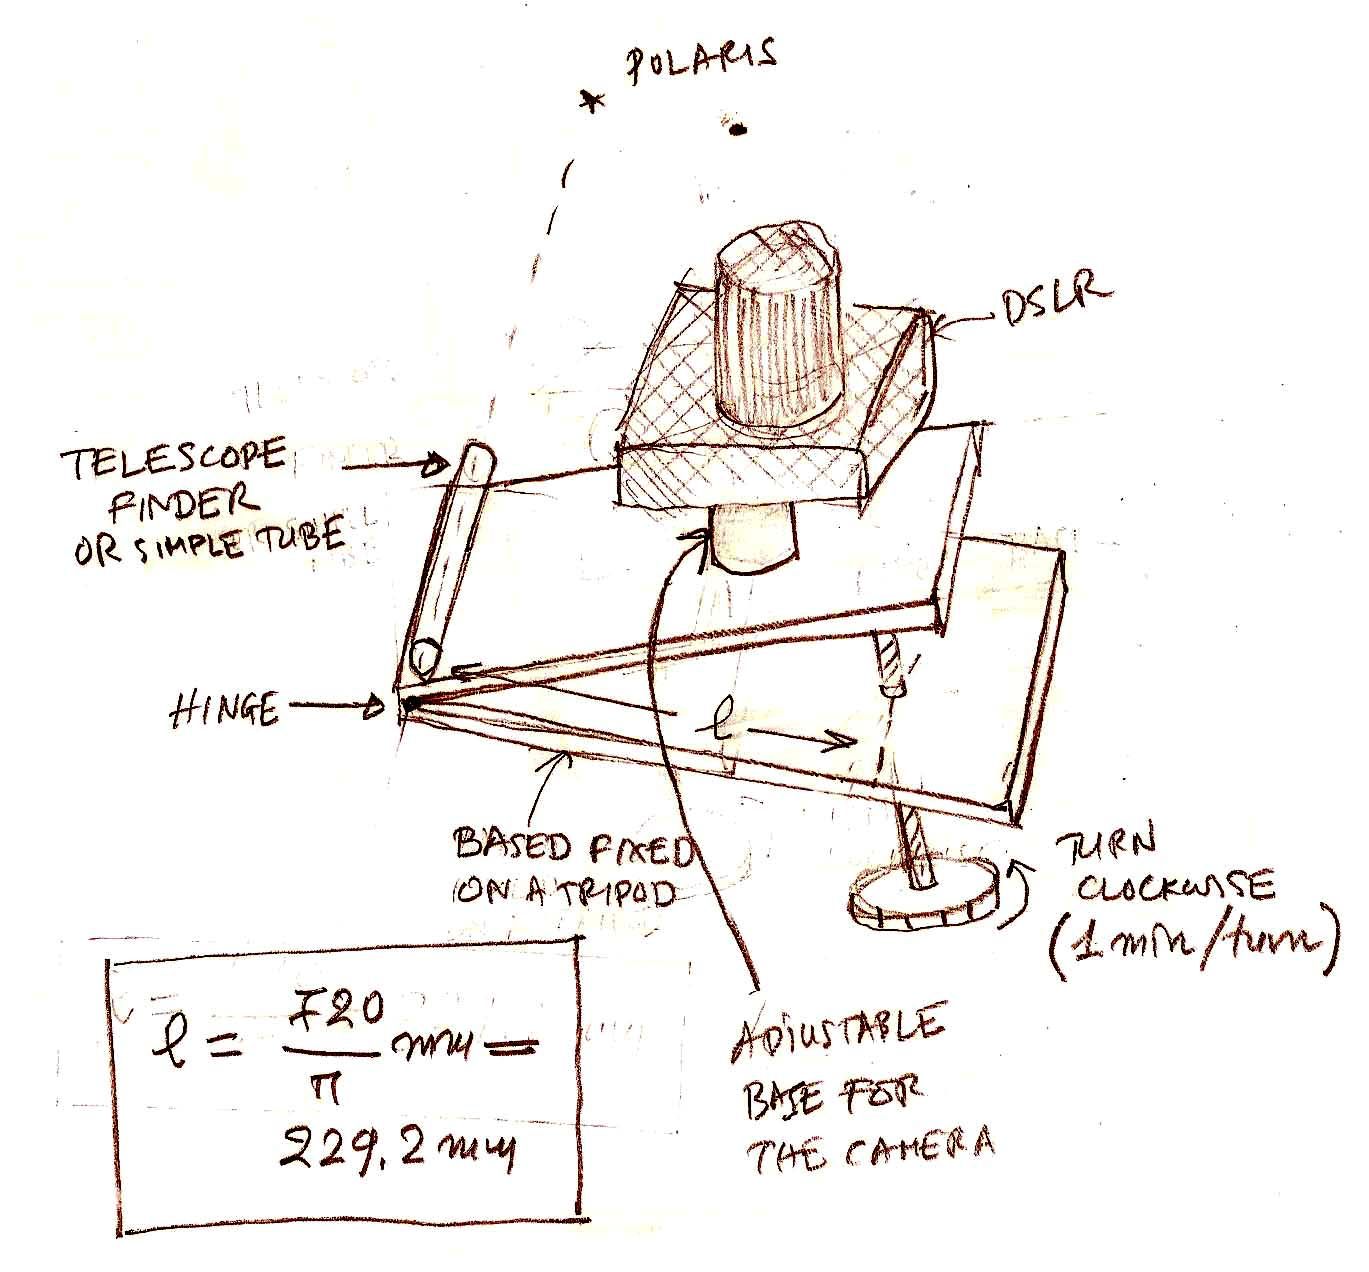 POLARIS
DSLR
TELESCOPE
FINDER
OR SIMPLE TUBE
HINGE
l
BASED FIXED
ON A TRIPOD
TURN
CLOCKWISE
(1 min/turn)
l = 720/π mm =
229.2 mm
ADIUSTABLE
BASE FOR
THE CAMERA